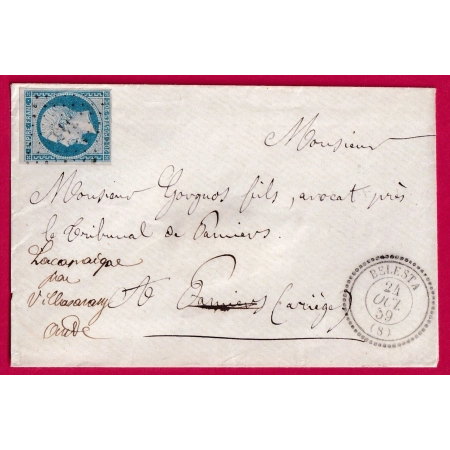 EMPIRE FRANC
Monsieur
Monsieur Gorguos fils, avocat près
le Tribunal de Pamiers.
Lacassaigne
par
Villasavary
Aude
A Pamiers (Ariège)
BELESTA
24
OCT.
59
(8)